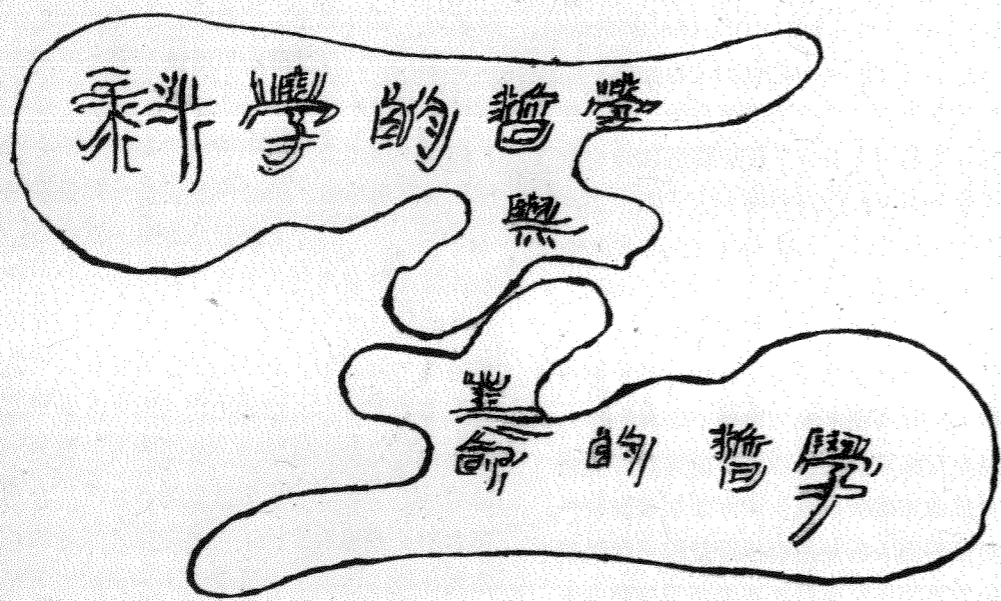 科學的哲學
與
生
命的哲學